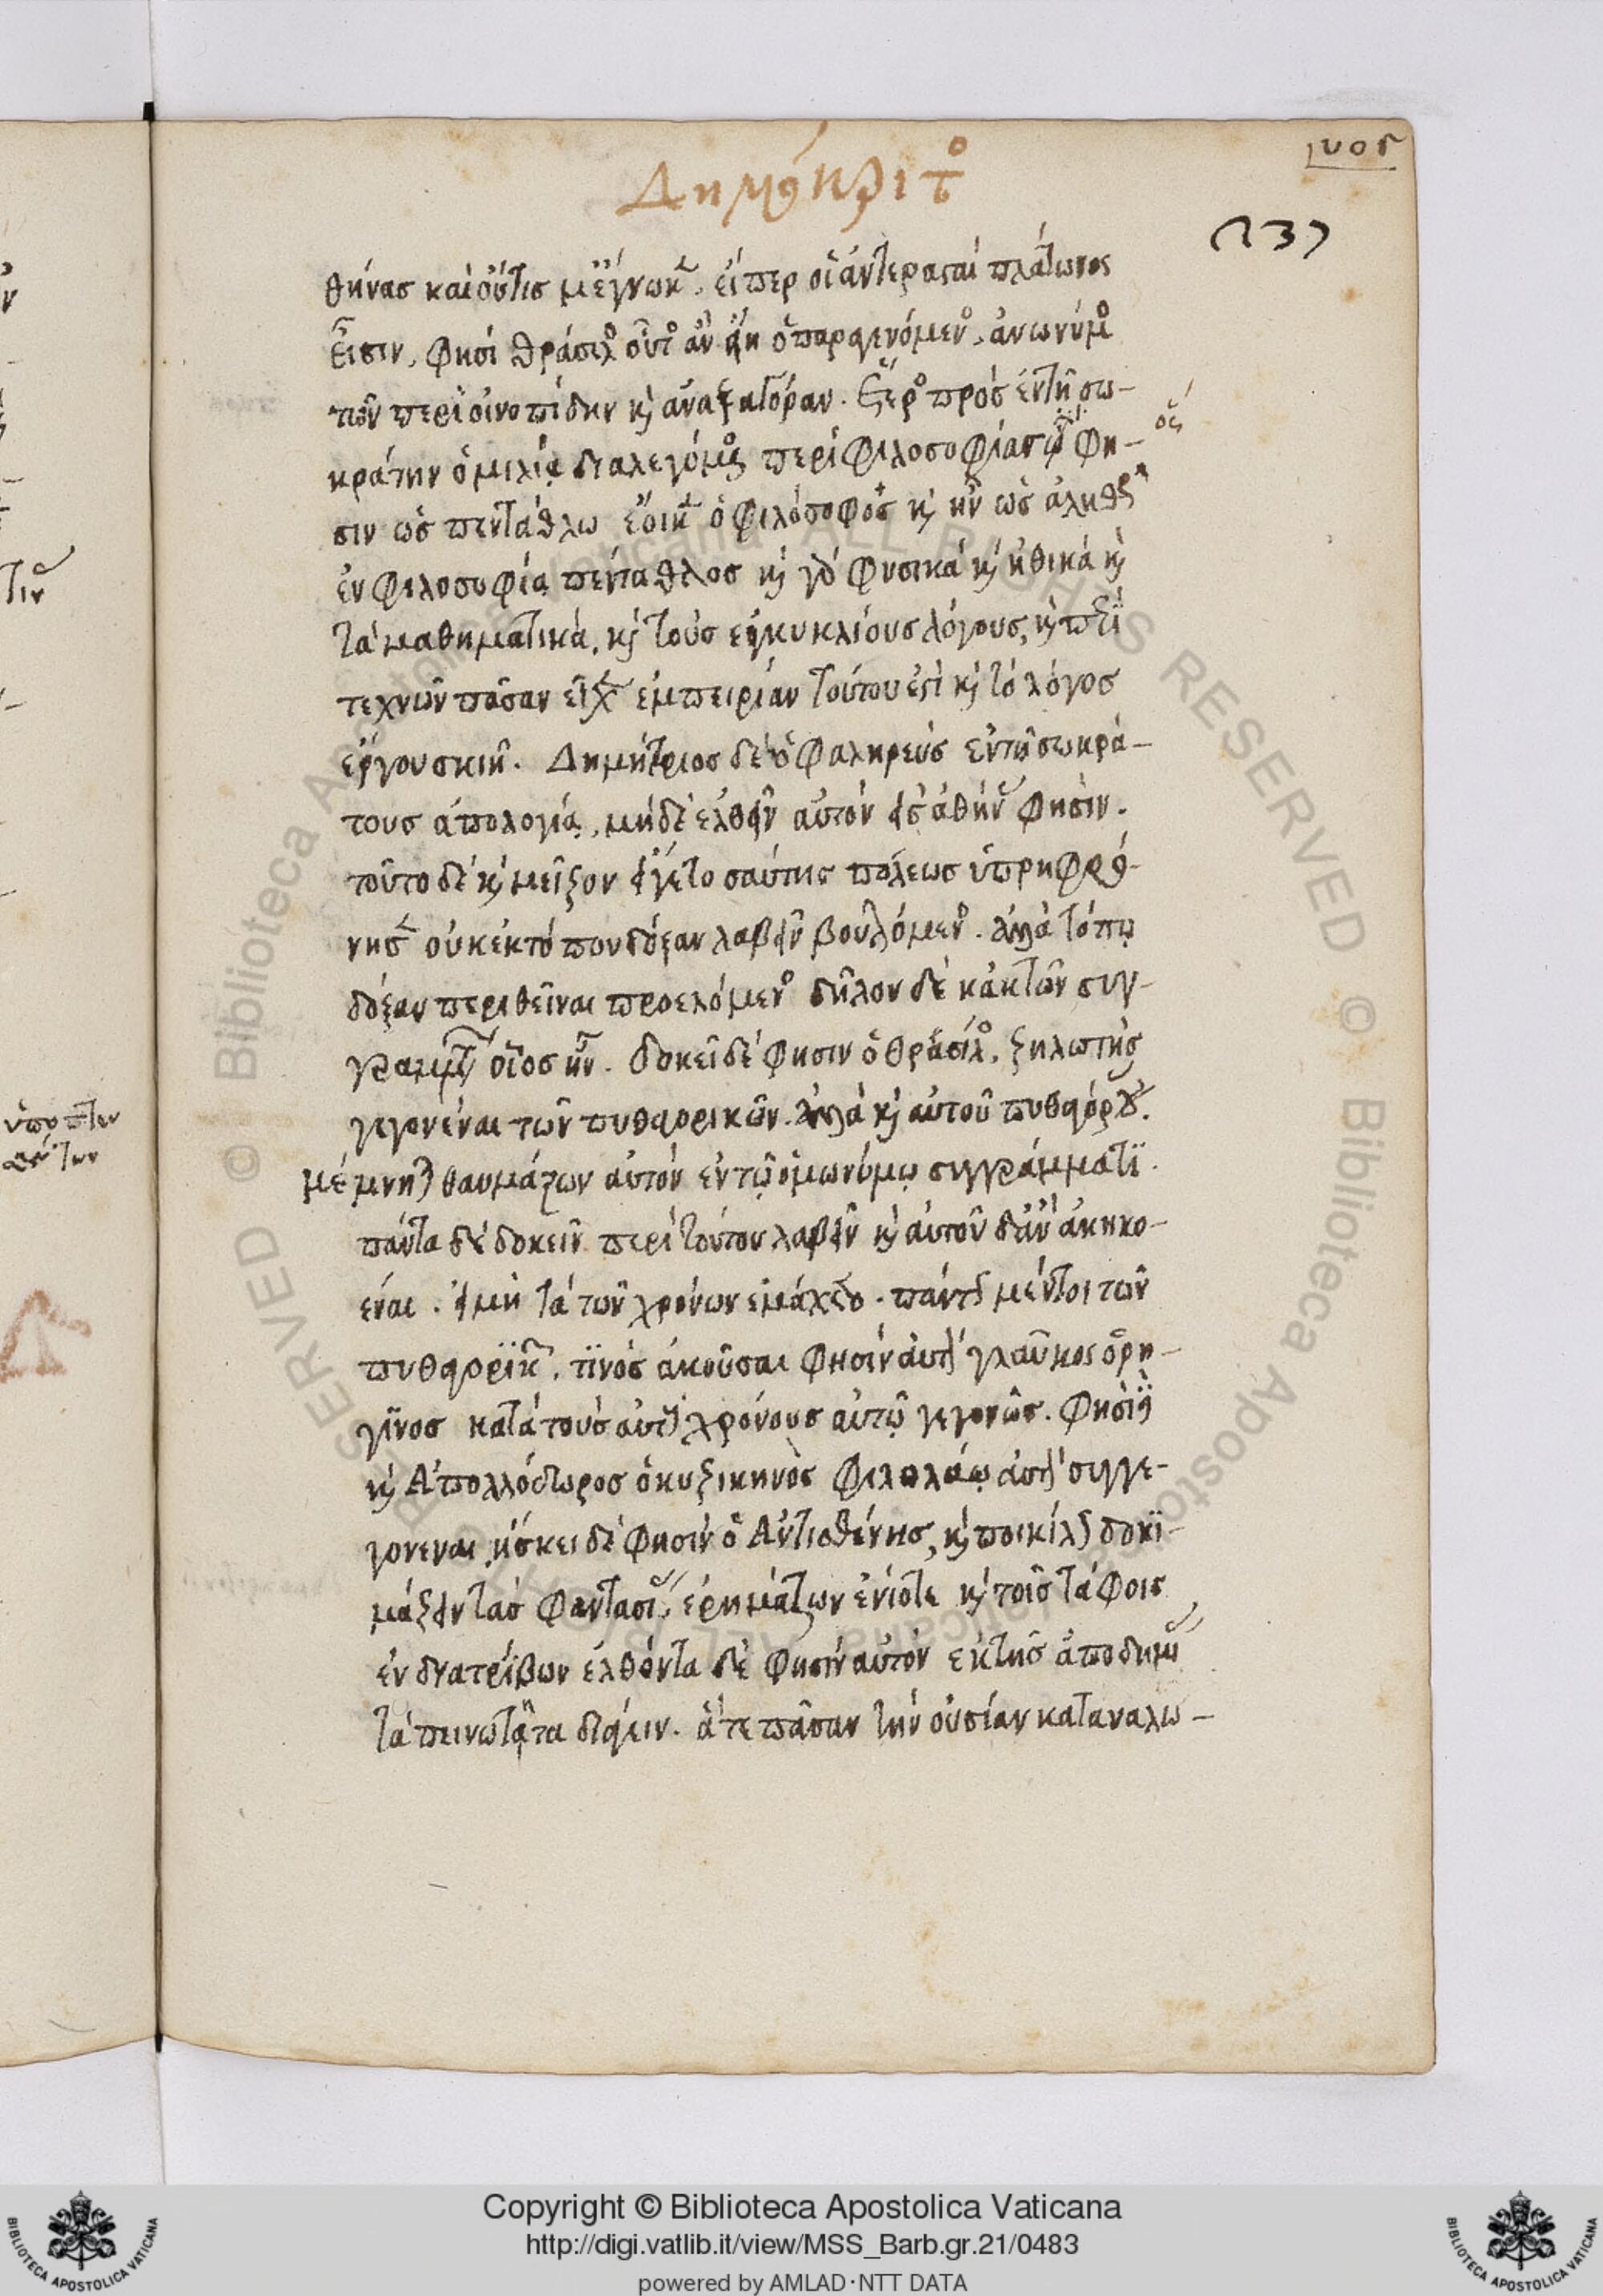 Δημόκριτος
237
θήνας καὶ οὔτις με ἔγνωκεν. εἴπερ οἱ ἀντερασταὶ πλάτωνος
εἰσιν, φησὶ θράσυλος οὗτος ἂν εἴη ὁ παραγενόμενος ἀνώνυμος
τῶν περὶ οἰνοπίδην καὶ ἀναξαγόραν. ἕτερος πρὸς ἐν τῇ σω-
κράτην ὁμιλίᾳ διαλεγόμενος περὶ φιλοσοφίας ᾧ φη-
σιν ὡς πεντάθλω ἔοικεν ὁ φιλόσοφος καὶ ἦν ὡς ἀληθῶς
ἐν φιλοσοφίᾳ πένταθλος καὶ γὰρ φυσικὰ καὶ ἠθικὰ καὶ
τὰ μαθηματικὰ, καὶ τοὺς ἐγκυκλίους λόγους, καὶ περὶ
τεχνῶν πᾶσαν εἶχεν ἐμπειρίαν τούτου ἐστὶ καὶ τὸ λόγος
ἔργου σκιή. Δημήτριος δὲ ὁ φαληρεὺς ἐν τῇ σωκρά-
τους ἀπολογίᾳ, μηδὲ ἐλθεῖν αὐτὸν εἰς ἀθήνας φησὶν.
τοῦτο δὲ καὶ μεῖζον εἴγε τοσαύτης πόλεως ὑπερηφρό-
νησεν οὐκ ἐκ τόπου δόξαν λαβεῖν βουλόμενος. ἀλλὰ τόπῳ
δόξαν περιθεῖναι προελόμενος δῆλον δὲ κἀκ τῶν συγ-
γραμμάτων οἷος ἦν. δοκεῖ δέ φησιν ὁ θράσυλος, ζηλωτὴς
γεγονέναι τῶν πυθαγορικῶν. ἀλλὰ καὶ αὐτοῦ πυθαγόρου.
μέμνηται θαυμάζων αὐτὸν ἐν τῷ ὁμωνύμῳ συγγράμματι.
πάντα δὲ δοκεῖν περὶ τούτου λαβεῖν καὶ αὐτοῦ δ' ἂν ἀκηκο-
έναι. εἰ μὴ τὰ τῶν χρόνων ἐμάχετο. πάντως μέντοι τῶν
πυθαγορικῶν, τινὸς ἀκοῦσαι φησὶν αὐτὸν γλαῦκος ὁ ρη-
γῖνος κατὰ τοὺς αὐτοὺς χρόνους αὐτῷ γεγονώς. φησὶ δὲ
καὶ Ἀπολλόδωρος ὁ κυζικηνὸς φιλολάῳ αὐτὸν συγγε-
γονεναι ἤσκει δὲ φησὶν ὁ Ἀντισθένης, καὶ ποικίλως δοκι-
μάζειν τὰς φαντασίας, ἐρημάζων ἐνίοτε καὶ τοῖς τάφοις
ἐν διατρίβων ἐλθόντα δὲ φησὶν αὐτὸν ἐκ τῆς ἀποδημίας
ταπεινότατα διάγειν. ἅτε πᾶσαν τὴν οὐσίαν καταναλω-
Copyright © Biblioteca Apostolica Vaticana
http://digi.vatlib.it/view/MSS_Barb.gr.21/0483
powered by AMLAD·NTT DATA